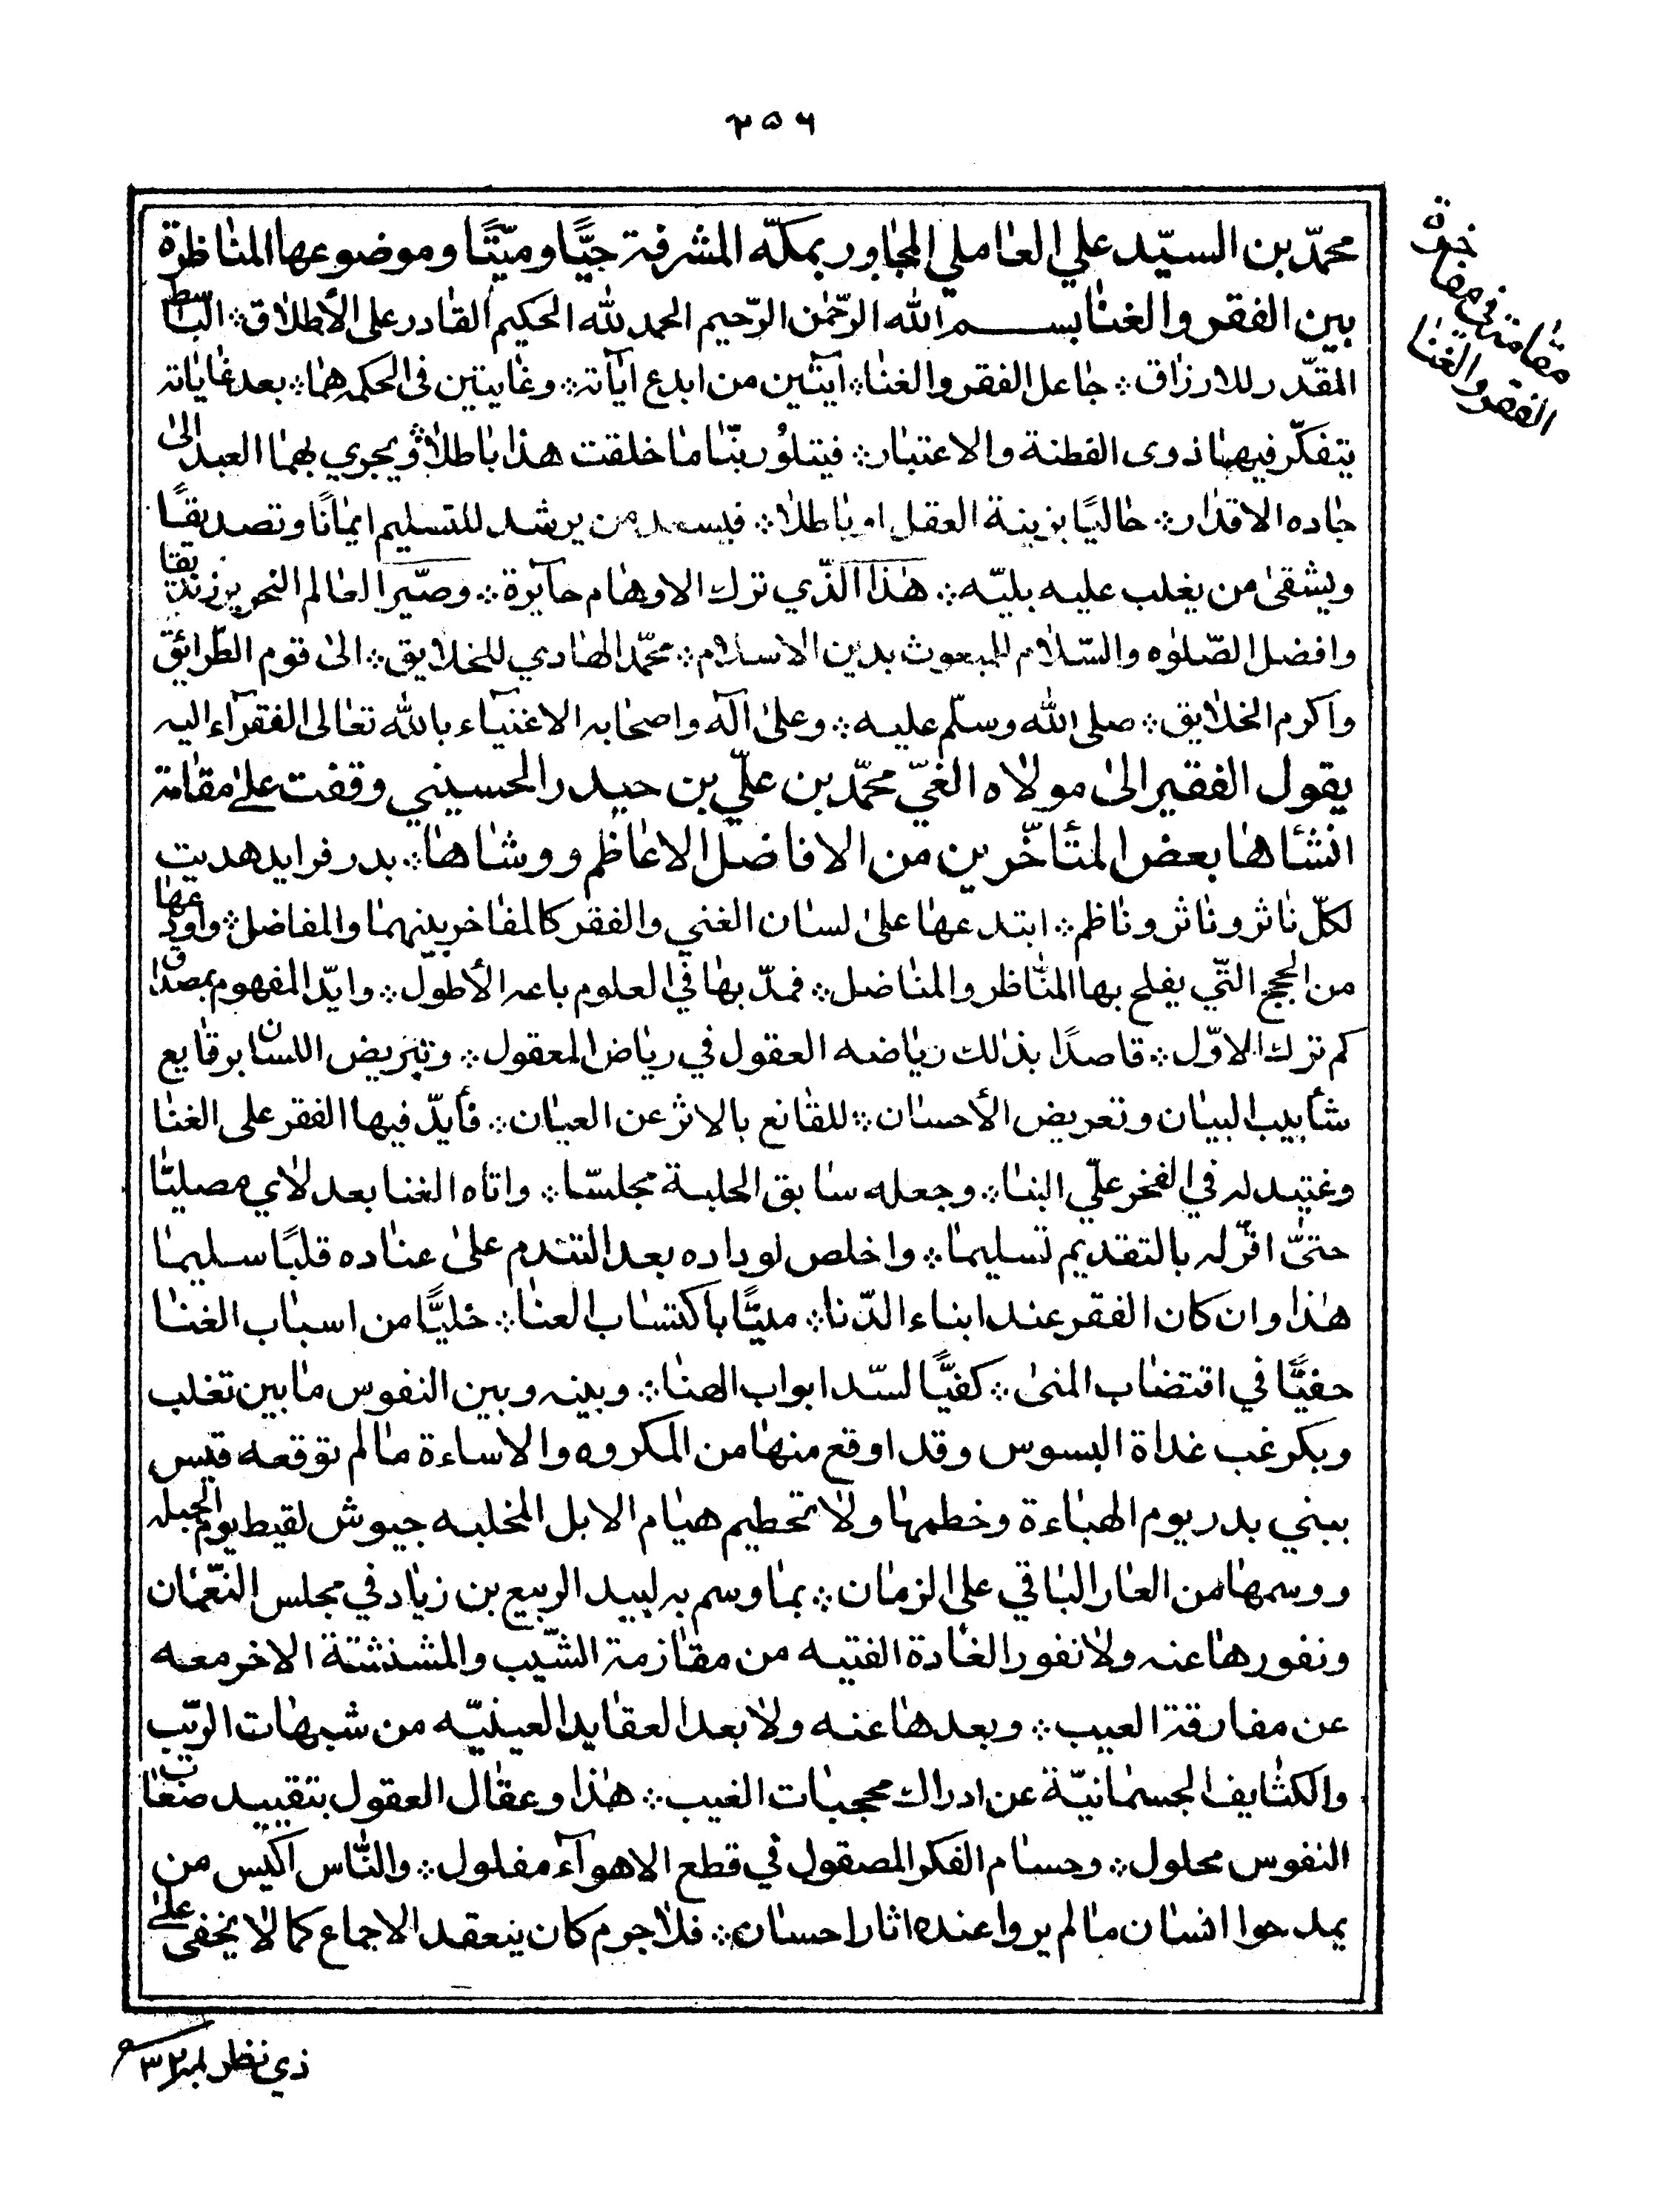 ٢٥٦
مقامة في مفاخرة
الفقر والغنا
محمّد بن السيّد علي العاملي المجاور بمكّه المشرفة حيًّا وميّتًا وموضوعها المناظرة
بين الفقر والغنا بسم الله الرّحمن الرّحيم الحمد لله الحكيم القادر على الأطلاق ؞ الباسط
المقدّر للارزاق ؞ جاعل الفقر والغنا ؞ آيتين من ابدع آياته ؞ وغايتين في الحكمه هما ؞ بعد غاياته
يتفكّر فيهما ذوى الفطنة والاعتبار ؞ فيتلو ربّنا ما خلقت هذا باطلا ؞ ويجري بهما العبد الى
جاده الاقدار ؞ حاليًا بزينة العقل او باطلا ؞ فيسعد من يرشد للتسليم ايمانًا وتصديقًا
ويشقى من يغلب عليه بليّه ؞ هذا الذّي ترك الاوهام حآيرة ؞ وصيّر العالم النحرير زنديقا
وافضل الصّلوه والسّلام للمبعوث بدين الاسلام ؞ محمّد الهادي للخلايق ؞ الى قوم الطّرائق
واكرم الخلايق ؞ صلى الله وسلّم عليه ؞ وعلى آله واصحابه الاغنيآء بالله تعالى الفقرآء اليه
يقول الفقير الى مولاه الغي محمّد بن عليّ بن حيدر الحسيني وقفت على مقامة
انشأها بعض المتأخّرين من الافاضل الاعاظم ووشاها ؞ بدر فرايد هديت
لكلّ ناثر وناثر وناظم ؞ ابتدعها على لسان الغني والفقر كالمفاخر بينهما والمفاضل ؞ واودعها
من الحجج التّي يفلح بها المناظر والمناضل ؞ فمدّ بها في العلوم باعه الأطول ؞ وايّد المفهوم بمصداق
كم ترك الاوّل ؞ قاصدًا بذالك رياضه العقول في رياض المعقول ؞ وتبريض اللسان برقايع
شأبيب البيان وتعريض الأحسان ؞ للقانع بالاثر عن العيان ؞ فأيدّ فيها الفقر على الغنا
وغتيد له في الفخر عليّ البنا ؞ وجعله سابق الحلبة مجلسّا ؞ واتاه الغنا بعد لاي مصليّا
حتىّ اقرّ له بالتقديم تسليما ؞ واخلص لوداده بعد التندم على عناده قلبًا سليما
هذا وان كان الفقر عند ابناء الدّنا ؞ مليًّا باكتساب العنا ؞ خليًّا من اسباب الغنا
حفيًّا في اقتضاب المنى ؞ كفيًّا لسدّ ابواب الهنا ؞ وبينه وبين النفوس ما بين تغلب
وبكر غب غداة البسوس وقد اوقع منها من المكروه والاساءة ما لم توقعه قيس
ببني بدر يوم الهباءة وخطمها ولا تحطيم هيام الابل المخلبه جيوش لقيط يوم الجبله
ووسمها من العار الباقي على الزمان ؞ بما وسم به لبيد الربيع بن زياد في مجلس النّعمان
ونفورها عنه ولا نفور الغادة الفتيه من مقازمة الشّيب والمشنثتة الاخر معه
عن مفارقة العيب ؞ وبعدها عنه ولا بعد العقايد العينيّه من شبهات الريب
والكثايف الجسمانيّة عن ادراك محجبات الغيب ؞ هذا وعقال العقول بتقييد صفات
النفوس محلول ؞ وحسام الفكر المصقول في قطع الاهوآء مفلول ؞ والنّاس اكيس من
يمدحوا انسان ما لم يروا عنده اثار احسان ؞ فلا جرم كان ينعقد الاجماع كما لا يخفى على
ذي نظر نمبر ٣٢